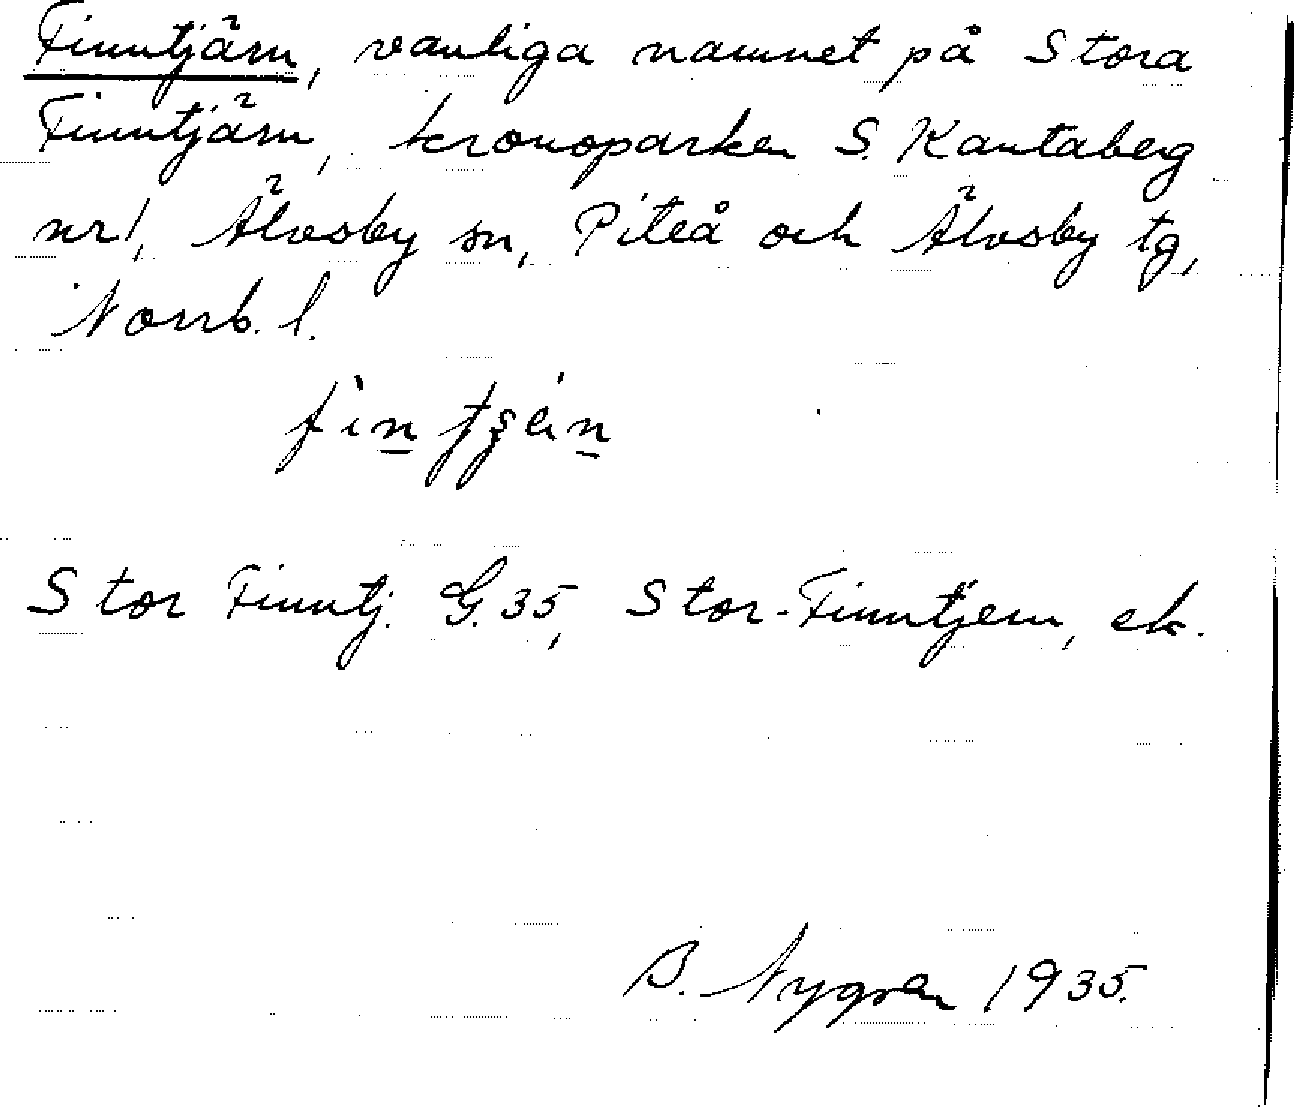 Finntjärn, vanliga namnet på Stora
Finntjärn, kronoparken S. Kantaberg
nr 1, Älvsby sn, Piteå och Älvsby tg,
Norrb. l.
Stor Finntj. G. 35, Stor-Finntjern, ek.
B. Nygren 1935.